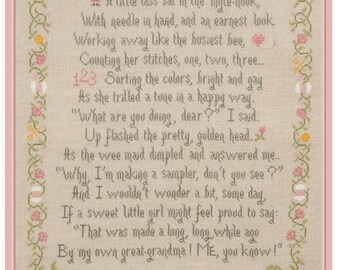 A little lass sat in the ingle-nook,
With needle in hand, and an earnest look
Working away like the busiest bee,
Counting her stitches, one, two, three...
123 Sorting the colors, bright and gay
As she trilled a tune in a happy way.
"What are you doing, dear?" I said.
Up flashed the pretty, golden head..
As the wee maid dimpled and answered me..
"Why, I'm making a sampler, don't you see?"
And I wouldn't wonder a bit, some day,
If a sweet little girl might feel proud to say:
"That was made a long, long while ago
By my own great-grandma! ME, you know!"